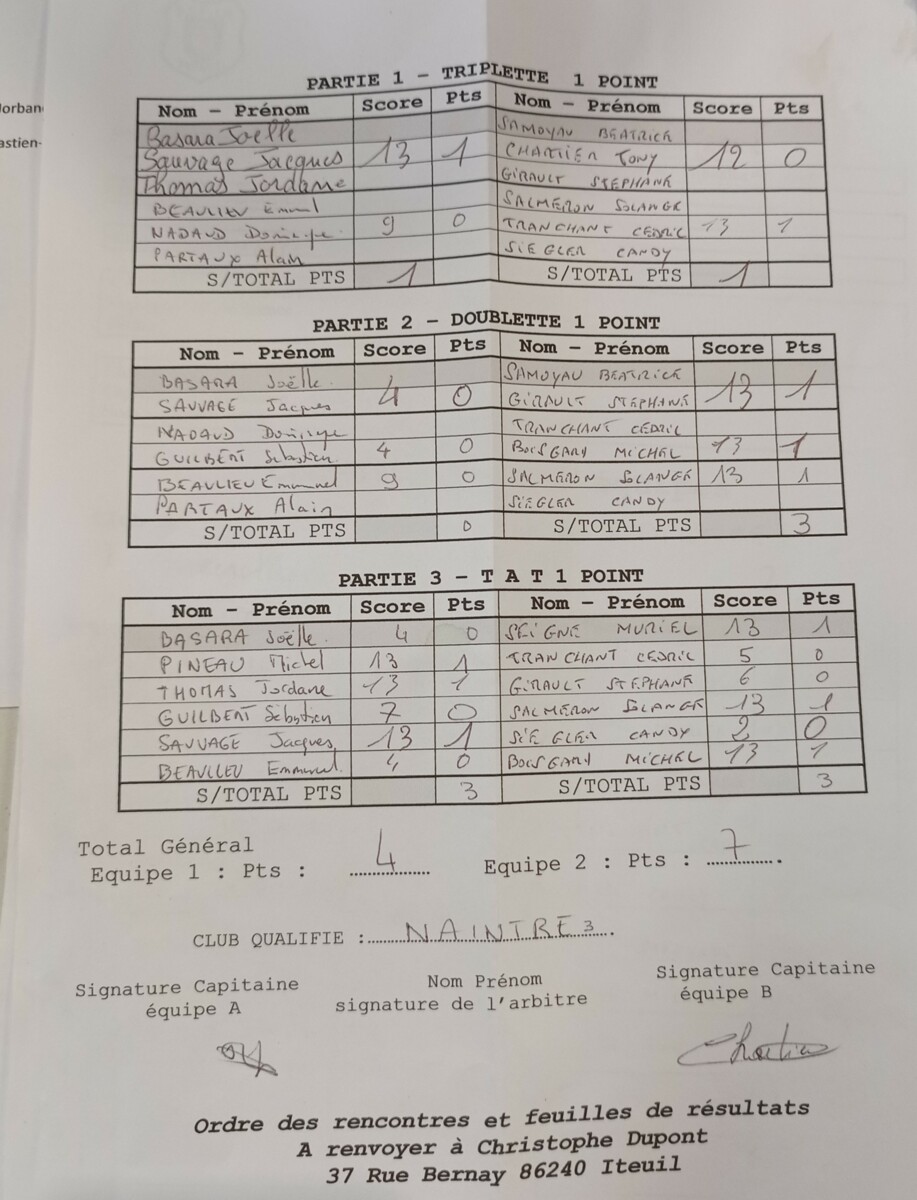 orban
astien-
PARTIE 1 – TRIPLETTE 1 POINT
Nom – Prénom Score Pts Nom – Prénom Score Pts
Basara Joëlle SAMOYAU BEATRICE
Sauvage Jacques 13 1 CHARTIER TONY 12 0
Thomas Jordane GIRAULT STEPHANE
BEAULIEU Emmanuel SALMERON SOLANGE
NADAUD Dominique 9 0 TRANCHANT CEDRIC 13 1
PARTAUX Alain SIEGLER CANDY
S/TOTAL PTS 1 S/TOTAL PTS 1
PARTIE 2 – DOUBLETTE 1 POINT
Nom – Prénom Score Pts Nom – Prénom Score Pts
BASARA Joëlle SAMOYAU BEATRICE
SAUVAGE Jacques 4 0 GIRAULT STEPHANE 13 1
NADAUD Dominique TRANCHANT CEDRIC
GUILBERT Sébastien 4 0 BOISGARD MICHEL 13 1
BEAULIEU Emmanuel 9 0 SALMERON SOLANGE 13 1
PARTAUX Alain SIEGLER CANDY
S/TOTAL PTS 0 S/TOTAL PTS 3
PARTIE 3 – T A T 1 POINT
Nom – Prénom Score Pts Nom – Prénom Score Pts
BASARA Joëlle 4 0 SEIGNE MURIEL 13 1
PINEAU Michel 13 1 TRANCHANT CEDRIC 5 0
THOMAS Jordane 13 1 GIRAULT STEPHANE 6 0
GUILBERT Sébastien 7 0 SALMERON SOLANGE 13 1
SAUVAGE Jacques 13 1 SIEGLER CANDY 2 0
BEAULIEU Emmanuel 4 0 BOISGARD MICHEL 13 1
S/TOTAL PTS 3 S/TOTAL PTS 3
Total Général
Equipe 1 : Pts : 4 Equipe 2 : Pts : 7
CLUB QUALIFIE : NAINTRE 3
Signature Capitaine Nom Prénom Signature Capitaine
équipe A signature de l'arbitre équipe B
Chartier
Ordre des rencontres et feuilles de résultats
A renvoyer à Christophe Dupont
37 Rue Bernay 86240 Iteuil